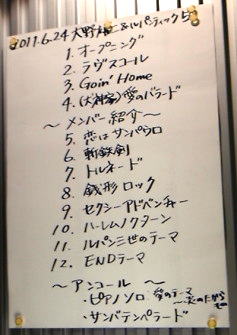 2011.6.24 大野雄二&ルパンティック
1. オープニング
2. ラヴスコール
3. Goin' Home
4. (犬神家) 愛のバラード
〜メンバー紹介〜
5. 恋はサンパウロ
6. 斬鉄剣
7. トルネード
8. 銭形ロック
9. セクシーアドベンチャー
10. ハーレムノクターン
11. ルパン三世のテーマ
12. ENDテーマ
〜アンコール
・ピアノソロ 愛のテーマ
〜炎のたからもの
・サンバテンペラード